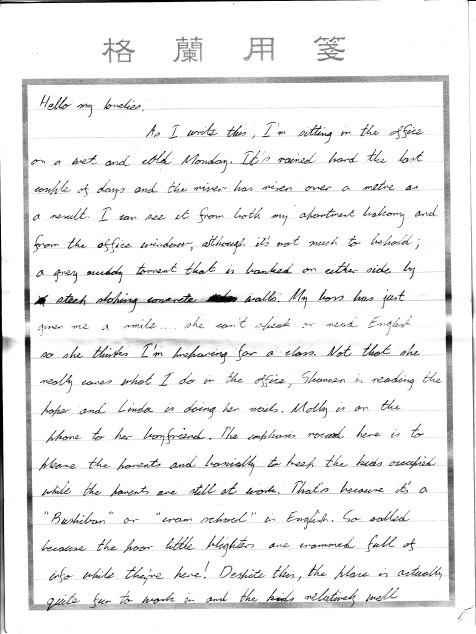 格蘭用箋
Hello my lovelies,
As I write this, I'm sitting in the office
on a wet and cold Monday. It's rained hard the last
couple of days and the river has risen over a metre as
a result. I can see it from both my apartment balcony and
from the office window, although it's not much to behold;
a grey muddy torrent that is banked on either side by
steep sloping concrete walls. My boss has just
given me a smile.... she can't speak or read English
so she thinks I'm preparing for a class. Not that she
really cares what I do in the office, Shannen is reading the
paper and Linda is doing her nails. Molly is on the
phone to her boyfriend. The emphasis round here is to
please the parents and basically to keep the kids occupied
while the parents are still at work. That's because it's a
"Bushiban" or "cram school" in English. So called
because the poor little blighters are crammed full of
info while they're here! Despite this, the place is actually
quite fun to work in and the kids relatively well